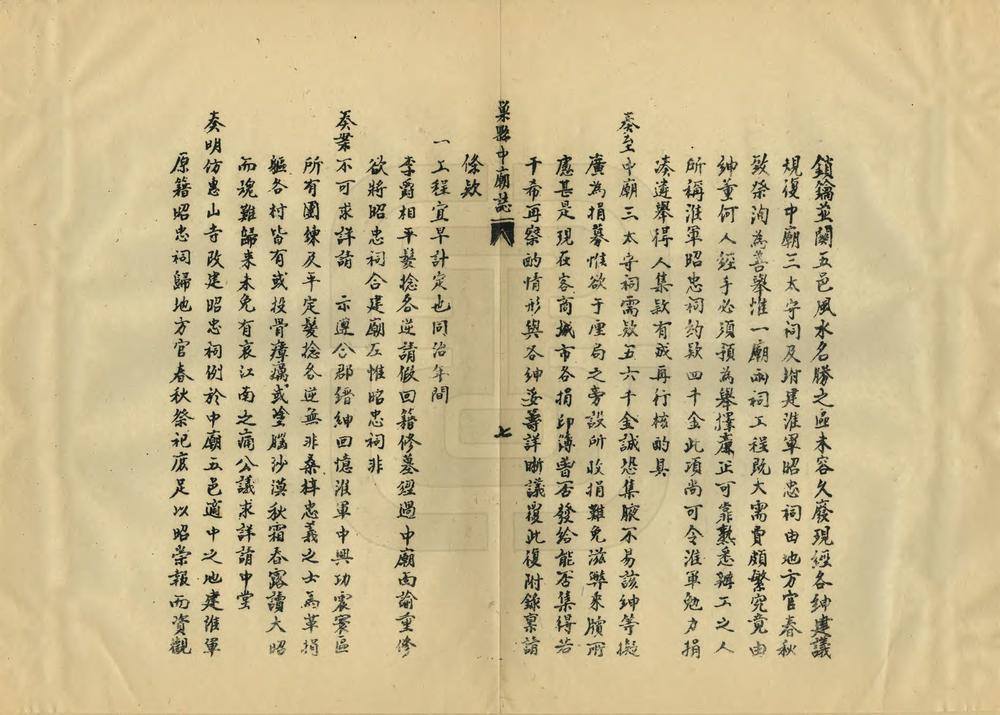 鎖鑰並關五邑風水名勝之區未容久廢現經各紳建議
規復中廟三太守祠及附建淮軍昭忠祠由地方官春秋
致祭洵為善舉惟一廟兩祠工程既大需費頗繁究竟由
紳董何人經手必須預為舉擇廉正可靠熟悉辦工之人
所稱淮軍昭忠祠約欵四千金此項尚可令淮軍勉力捐
湊遴舉得人集欵有成再行核酌具
奏至中廟三太守祠需欵五六千金誠恐集腋不易該紳等擬
廣為捐募惟欲于厘局之旁設所收捐難免滋弊來牘所
慮甚是現在客商城市各捐印簿曾否發給能否集得若
干希再察酌情形與各紳妥籌詳晰議覆此復附錄稟請
巢縣中廟誌
七
條欵
一工程宜早計定也同治年間
李爵相平髮捻各逆請假回籍修墓經過中廟面諭重修
欲將昭忠祠合建廟左惟昭忠祠非
奏業不可求詳請 示遵合郡縉紳回憶淮軍中興功震寰區
所有團練及平定髮捻各逆無非桑梓忠義之士為革捐
軀各村皆有或投骨瘴癘或塗腦沙漠秋霜春露讀大昭
而魂難歸來未免有哀江南之痛公議求詳請中堂
奏明仿惠山寺改建昭忠祠例於中廟五邑適中之地建淮軍
原籍昭忠祠歸地方官春秋祭祀底足以昭崇報而資觀